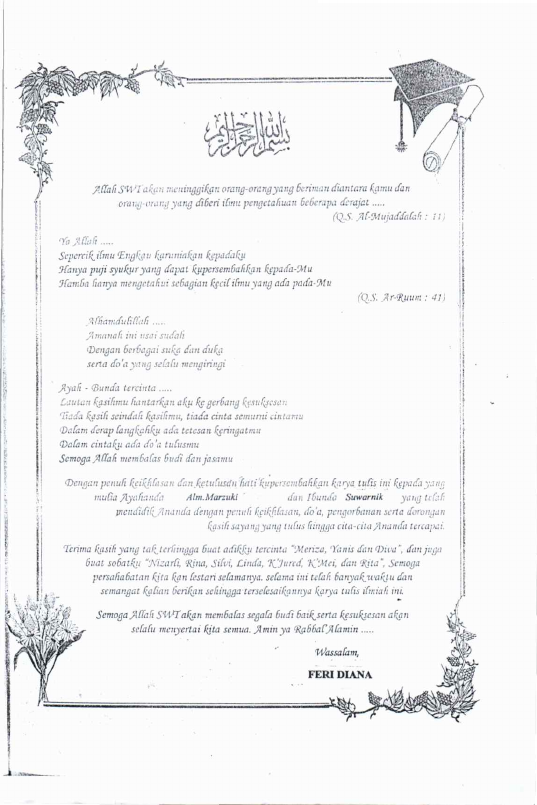 بسم الله الرحمن الرحيم
Allah SWT akan meninggikan orang-orang yang beriman diantara kamu dan
orang-orang yang diberi ilmu pengetahuan beberapa derajat .....
(Q.S. Al-Mujaddalah : 11)
Ya Allah .....
Sepercik ilmu Engkau karuniakan kepadaku
Hanya puji syukur yang dapat kupersembahkan kepada-Mu
Hamba hanya mengetahui sebagian kecil ilmu yang ada pada-Mu
(Q.S. Ar-Ruum : 41)
Alhamdulillah .....
Amanah ini usai sudah
Dengan berbagai suka dan duka
serta do'a yang selalu mengiringi
Ayah - Bunda tercinta .....
Lautan kasihmu hantarkan aku ke gerbang kesuksesan
Tiada kasih seindah kasihmu, tiada cinta semurni cintamu
Dalam derap langkahku ada tetesan keringatmu
Dalam cintaku ada do'a tulusmu
Semoga Allah membalas budi dan jasamu
Dengan penuh keikhlasan dan ketulusan hati kupersembahkan karya tulis ini kepada yang
mulia Ayahanda Alm.Marzuki dan Ibunda Suwarnik yang telah
mendidik Ananda dengan penuh keikhlasan, do'a, pengorbanan serta dorongan
kasih sayang yang tulus hingga cita-cita Ananda tercapai.
Terima kasih yang tak terhingga buat adikku tercinta "Meriza, Yanis dan Dwa", dan juga
buat sobatku "Nizarli, Rina, Silvi, Linda, K'Jured, K'Mei, dan Rita", Semoga
persahabatan kita kan lestari selamanya. selama ini telah banyak waktu dan
semangat kalian berikan sehingga terselesaikannya karya tulis ilmiah ini.
Semoga Allah SWT akan membalas segala budi baik serta kesuksesan akan
selalu menyertai kita semua. Amin ya Rabbal'Alamin .....
Wassalam,
FERI DIANA